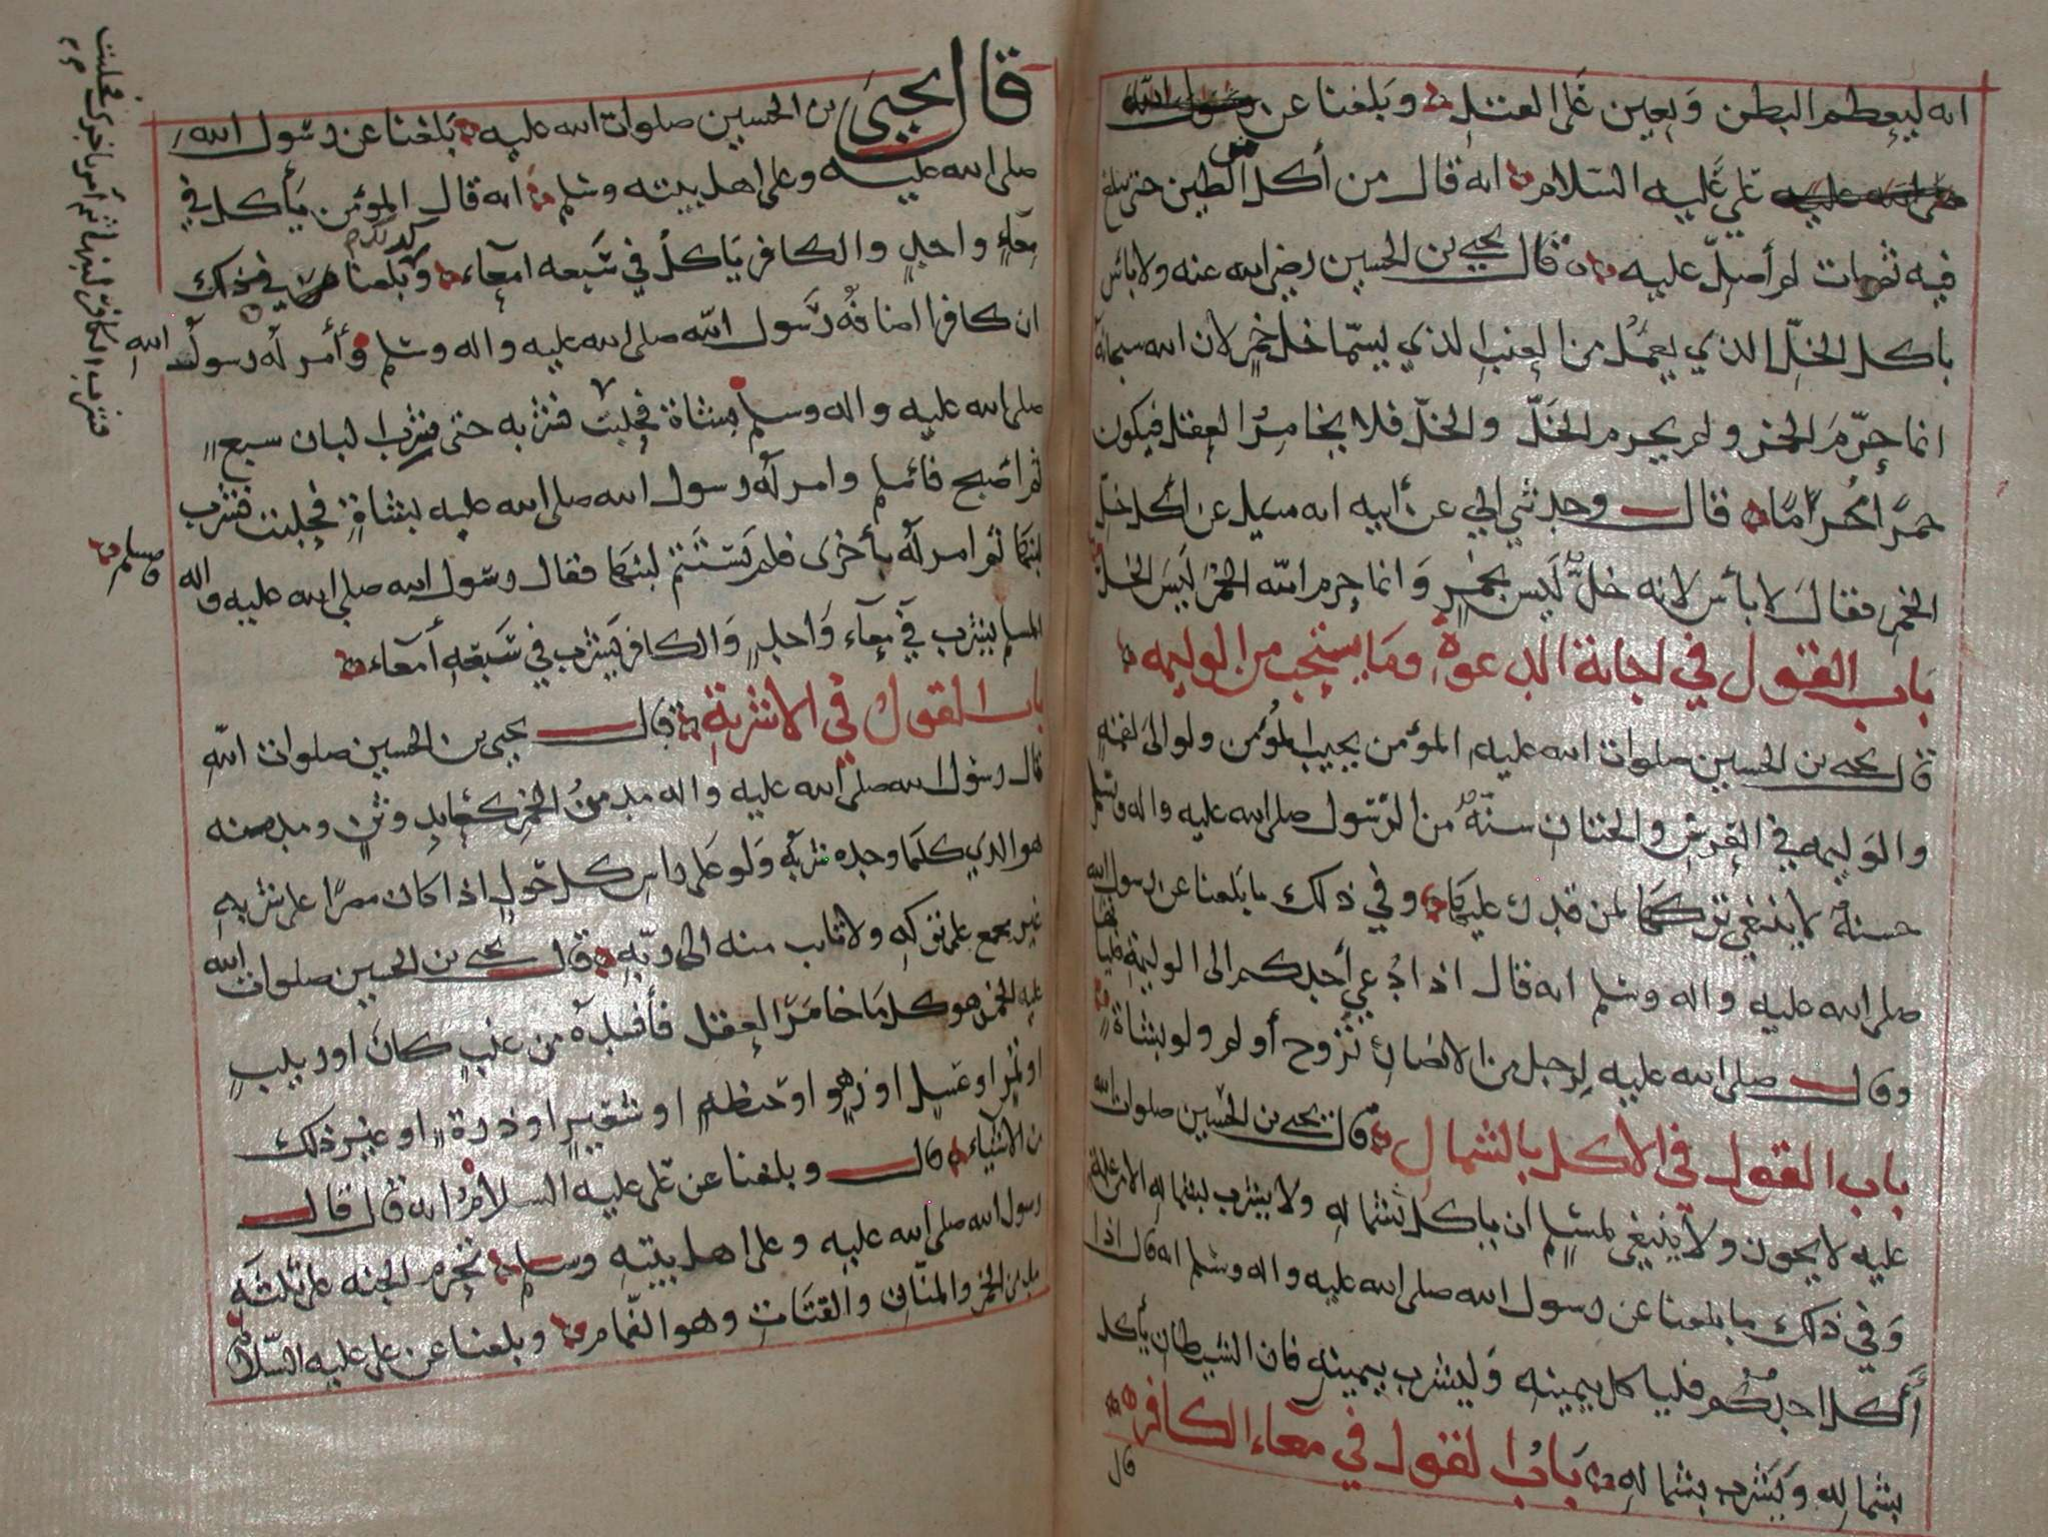 انه ليعظم البطن ويعين على القتل وبلغنا عن رسول الله
صلى الله عليه علي عليه السلام انه قال من أكل الطين حتى يبلغ
فيه ثم مات لم أصل عليه قال يحيى بن الحسين رضي الله عنه ولا باس
باكل الخل الذي يعمل من العنب الذي يسما خل خمر لان الله سبحانه
انما حرم الخمر ولم يحرم الخل والخل فلا يخامر العقل فيكون
خمرا محراما قال وحدثني ابي عن أبيه انه سئل عن أكل خل
الخمر فقال لا بأس لانه خل ليس بخمر وانما حرم الله الخمر ليس الخل
باب القول في اجابة الدعوة وما يستحب من الوليمه
قال يحيى بن الحسين صلوات الله عليه المؤمن يجيب المؤمن ولو الى لقمه
والوليمه في العرس والختان سنة من الرسول صلى الله عليه واله وسلم
حسنة لا ينبغي تركها لمن قدر عليها وفي ذلك ما بلغنا عن رسول الله
صلى الله عليه واله وسلم انه قال اذا دعي أحدكم الى الوليمة فليأتها
وقال صلى الله عليه لرجل من الانصار تزوح أولم ولو بشاة
باب القول في الاكل بالشمال قال يحيى بن الحسين صلوات الله
عليه لا يجوز ولا ينبغي لمسلم ان ياكل بشماله ولا يشرب بشماله الا من علة
وفي ذلك ما بلغنا عن رسول الله صلى الله عليه واله وسلم انه قال اذا
أكل احدكم فليا كل بيمينه وليشرب بيمينه فان الشيطان يأكل
بشماله ويشرب بشماله باب القول في معاء الكافر
قال
قال يحيى بن الحسين صلوات الله عليه بلغنا عن رسول الله
صلى الله عليه وعلى اهل بيته وسلم انه قال المؤمن يأكل في
معاء واحد والكافر ياكل في سبعه امعاء وبلغنا في ذلك
ان كافرا اضافه رسول الله صلى الله عليه واله وسلم وأمر له رسول الله
صلى الله عليه واله وسلم بشاة فحلبت فشربه حتى شرب البان سبع
ثم اصبح فاسلم وامر له رسول الله صلى الله عليه بشاة فحلبت فشرب
لبنها ثم امر له بأخرى فلم يستتم لبنها فقال رسول الله صلى الله عليه واله وسلم
المسلم يشرب في معاء واحد والكافر يشرب في سبعه أمعاء
باب القول في الاشربة قال يحيى بن الحسين صلوات الله
قال رسول الله صلى الله عليه واله مدمن الخمر كعابد وثن ومدمنه
هو الذي كلما وجده شربه ولو على راس كل حول اذا كان مصرا على شربه
غير مجمع على تركه ولا تائب منه الى ربه قال يحيى بن الحسين صلوات الله
عليه الخمر هو كل ما خامر العقل فأفسده من عنب كان او زبيب
او تمر او عسل او زهو او حنطه او شعير او ذرة او غير ذلك
من الاشياء قال وبلغنا عن علي عليه السلام انه قال قال
رسول الله صلى الله عليه وعلى اهل بيته وسلم تحرم الجنه على ثلثه
مدمن الخمر والمنان والقتات وهو النمام وبلغنا عن علي عليه السلام
فشرب الكافر لبنها ثم أمر بأخرى فحلبت